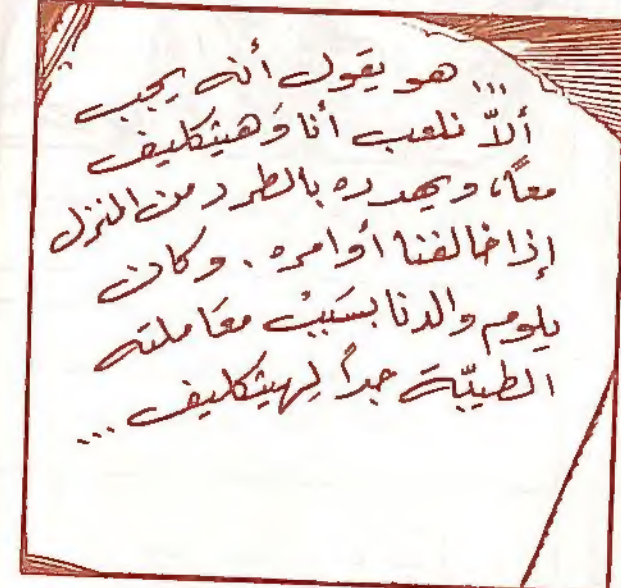 ... هو يقول أنه يجب
ألاّ نلعب أنا وَهيثكليف
معاً، ويهدده بالطرد من المنزل
إذا خالفنا أوامره. وكان
يلوم والدنا بسَببْ معَاملته
الطيبّة جداً لِهيثكليف ...